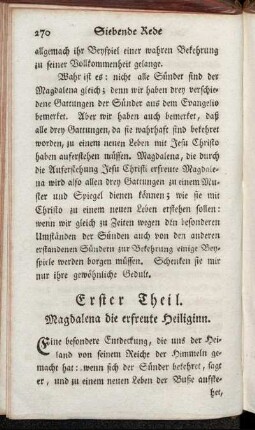 270 Siebende Rede
allgemach ihr Beyspiel einer wahren Bekehrung
zu seiner Vollkommenheit gelange.
Wahr ist es: nicht alle Sünder sind der
Magdalena gleich; denn wir haben drey verschie-
dene Gattungen der Sünder aus dem Evangelio
bemerket. Aber wir haben auch bemerket, daß
alle drey Gattungen, da sie wahrhaft sind bekehret
worden, zu einem neuen Leben mit Jesu Christo
haben auferstehen müssen. Magdalena, die durch
die Auferstehung Jesu Christi erfreute Magdale-
na wird also allen drey Gattungen zu einem Mu-
ster und Spiegel dienen können; wie sie mit
Christo zu einem neuen Leben erstehen sollen:
wenn wir gleich zu Zeiten wegen den besonderen
Umständen der Sünden auch von den anderen
erstandenen Sündern zur Bekehrung einige Bey-
spiele werden borgen müssen. Schenken sie mir
nur ihre gewöhnliche Gedult.
Erster Theil.
Magdalena die erfreute Heiliginn.
Eine besondere Entdeckung, die uns der Hei-
land von seinem Reiche der Himmeln ge-
macht hat: wenn sich der Sünder bekehret, sagt
er, und zu einem neuen Leben der Buße aufste-
het,